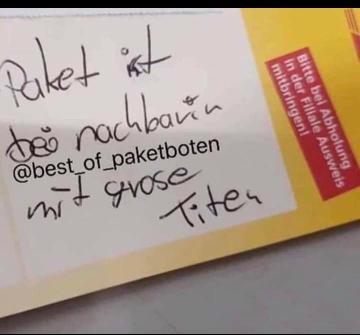 Paket ist
bei nachbarin
@best_of_paketboten
mit grose
Titen
Bitte bei Abholung
in der Filiale Ausweis
mitbringen!